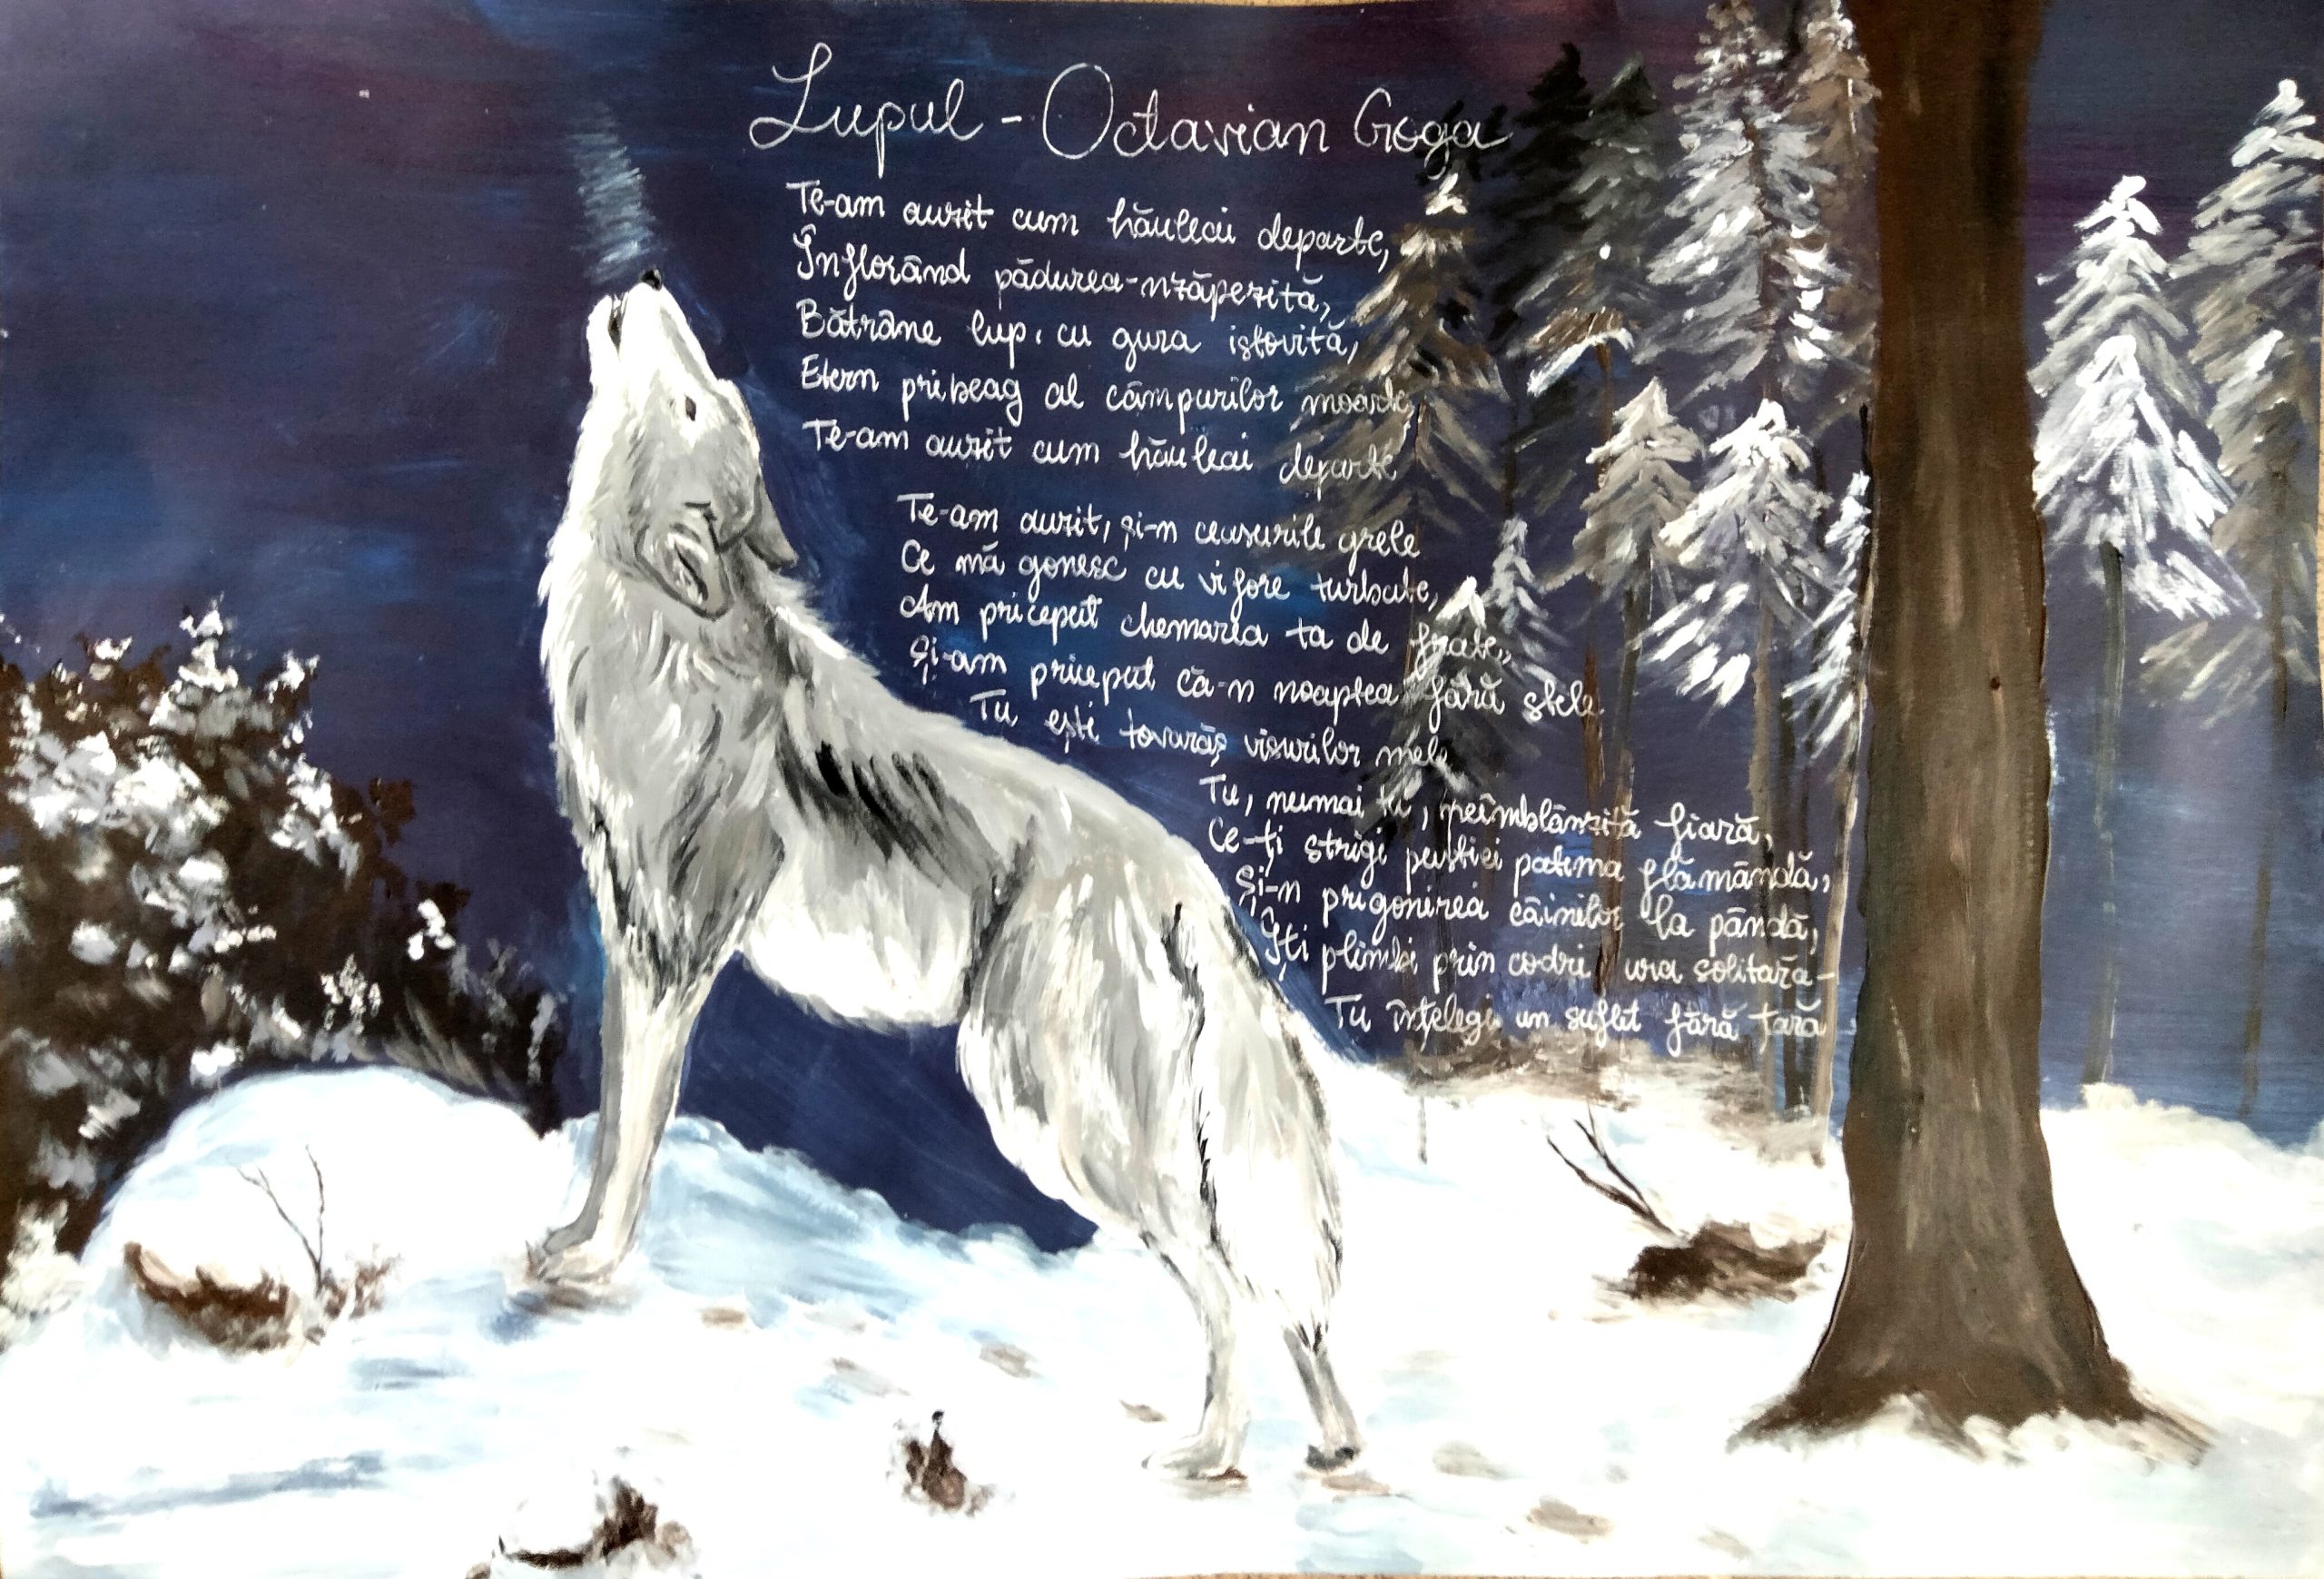 Lupul - Octavian Goga
Te-am auzit cum hăuleai departe,
Înflorând pădurea-nzăpezită,
Bătrâne lup, cu gura istovită,
Etern pribeag al câmpurilor moarte,
Te-am auzit cum hăuleai departe
Te-am auzit, și-n ceasurile grele
Ce mă gonesc cu vifore turbate,
Am priceput chemarea ta de frate,
Și-am priceput că-n noaptea fără stele
Tu ești tovarăș visurilor mele
Tu, numai tu, neîmblânzită fiară,
Ce-ți strigi pustiei patima flămândă,
Și-n prigonirea câinilor la pândă,
Îți plimbi prin codri ura solitară-
Tu înțelegi un suflet fără țară